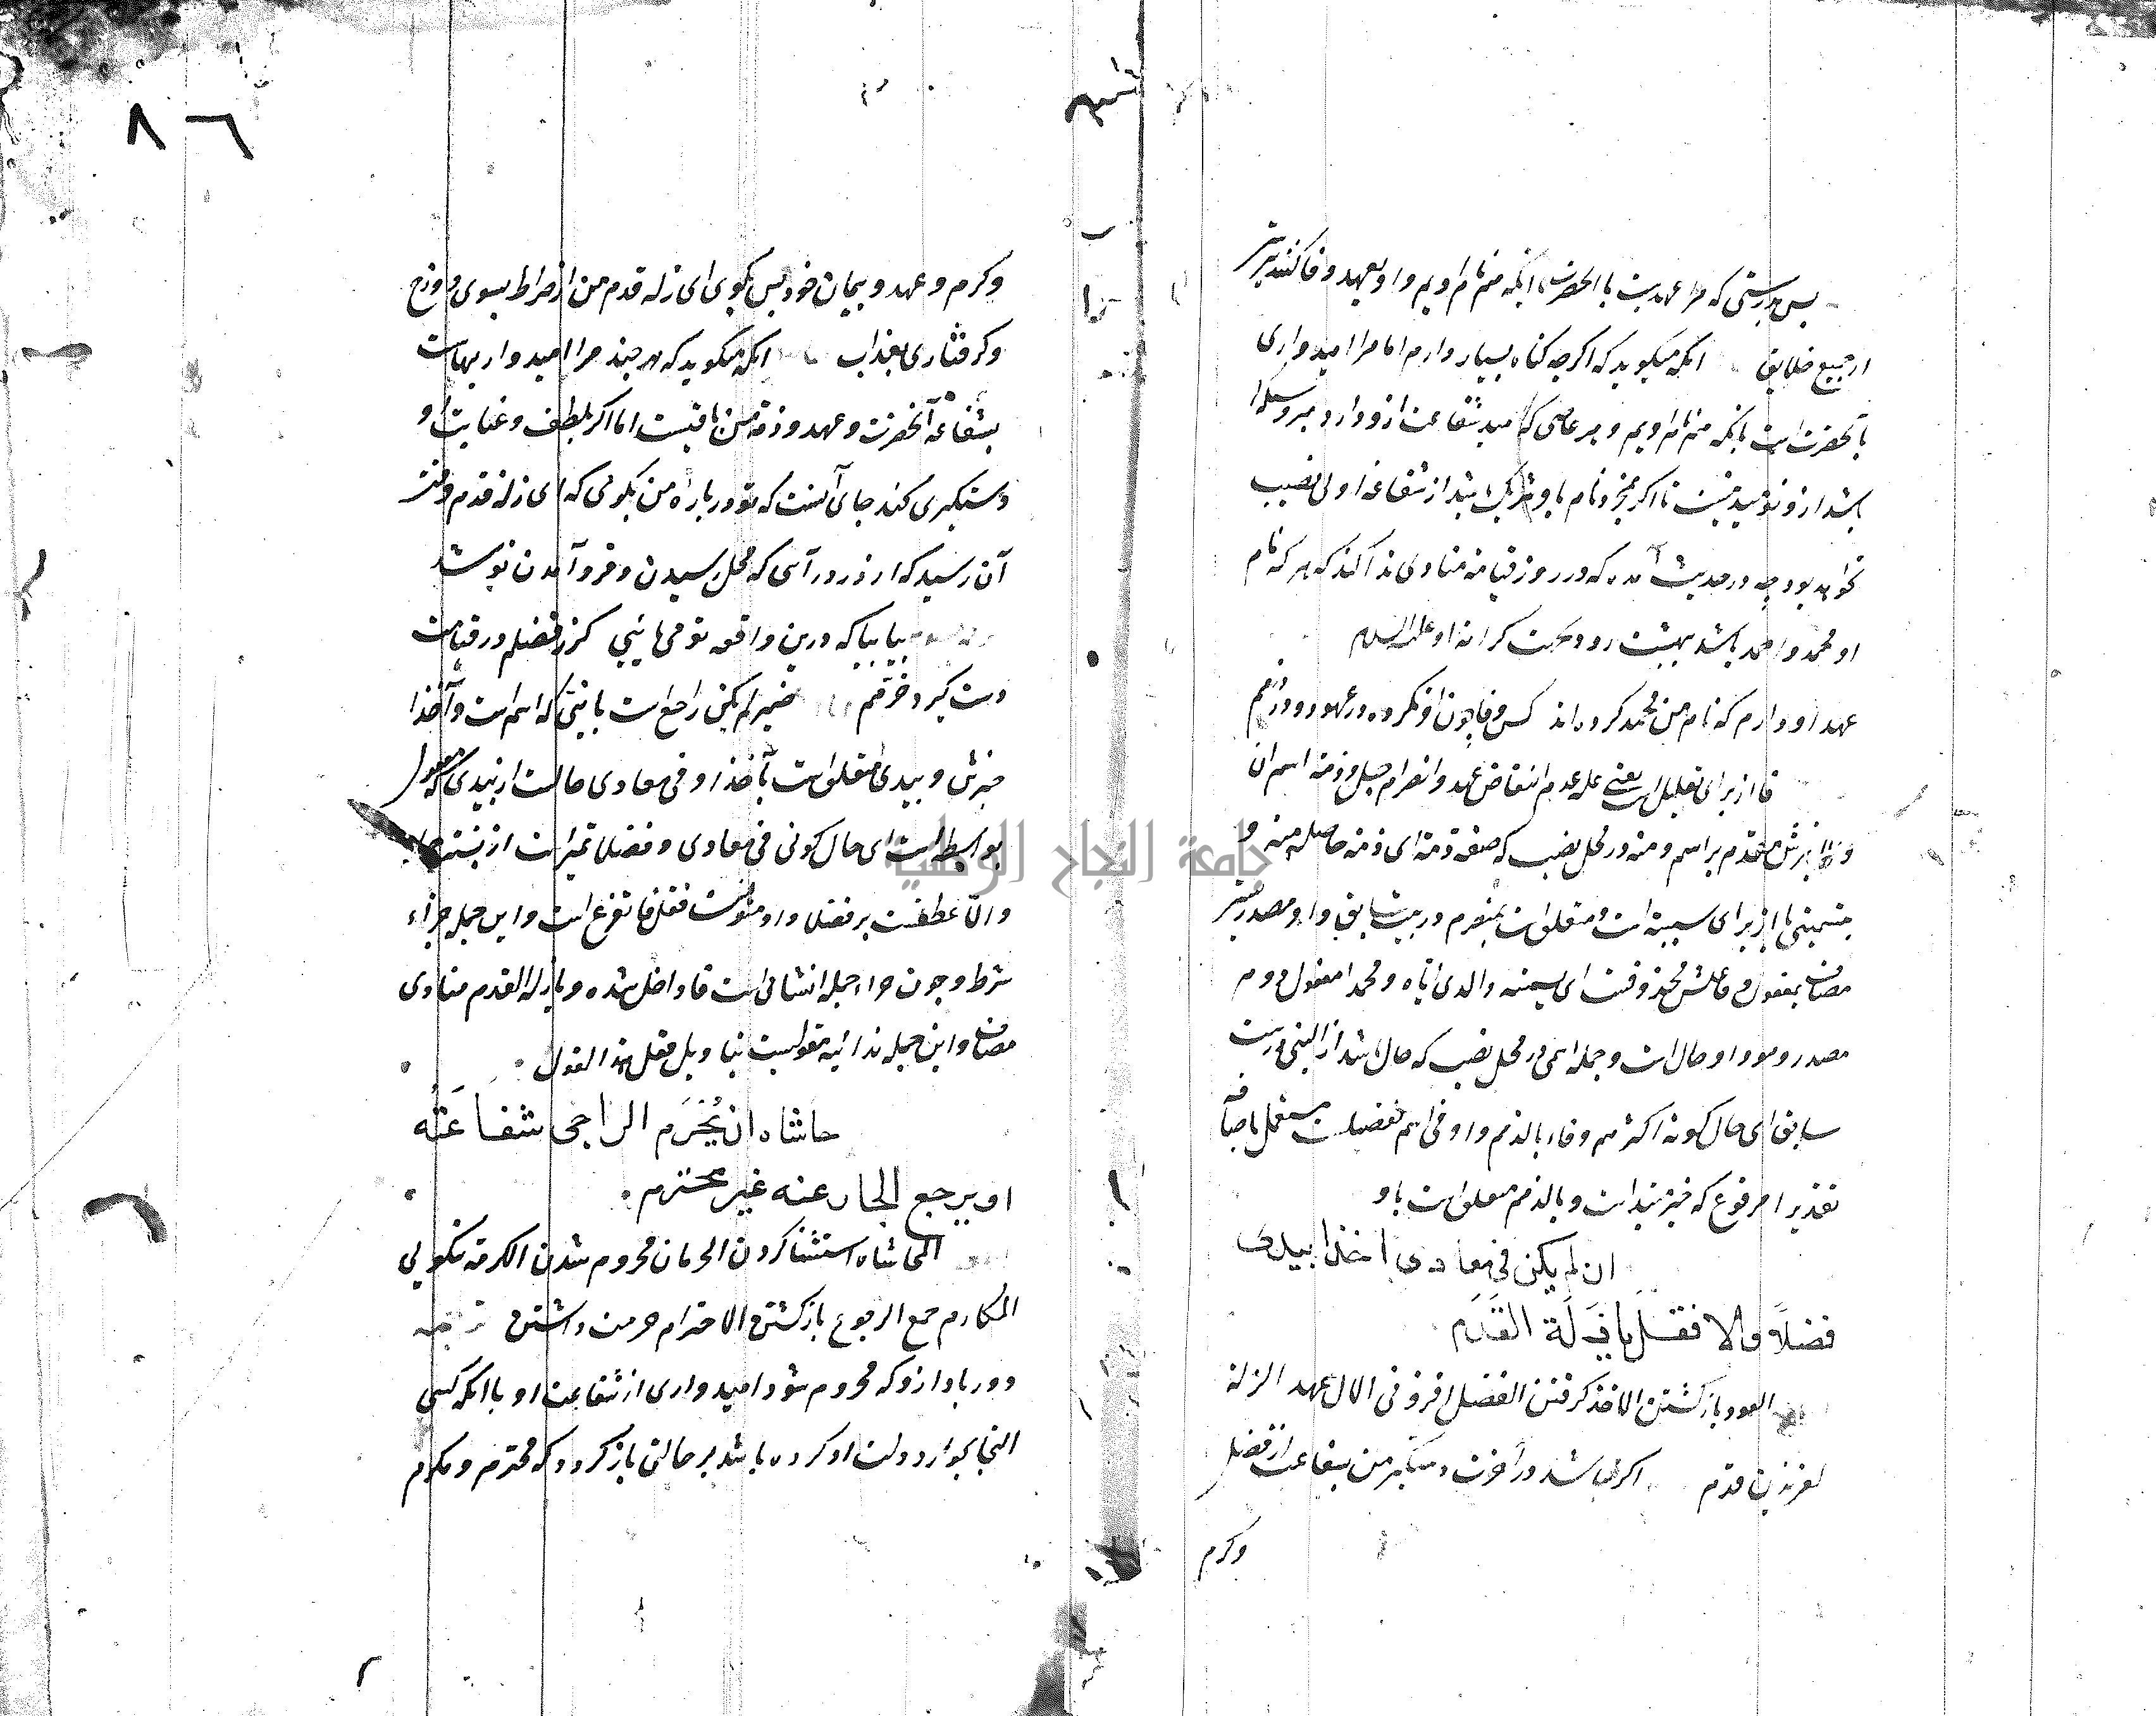 پس بدرستی که مرا عهدیست با آنحضرت بآنکه منم نام اویم و او بعهد وفا کننده تر
از جمیع خلایق انکه میکوید که اکرچه کناه بسیار دارم اما مرا امیدواری
بآنحضرت است بانکه منم نام اویم و هر عاصی که امید شفاعت ازو دارد
باشد ازو نومید نیست تا اکر مجرد نام با او شریک باشد از شفاعة او بی نصیب
نخواهد بود چه در حدیث آمده که در روز قیامة منادی ندا کند که هر که نام
او محمد و احمد باشد ببهشت رود بجهت کرامة او علیه السلام
عهد او دارم که نام من محمد کرده اند کس وفا چون او نکرده در عهود و در ذمم
فا از برای تعلیل است یعنی عدم انتقاض عهد و انصرام حبل و ذمة اسم ان
خبرش مقدم بر اسم و منه در محل نصب که صفة ذمة ای ذمة حاصلة منه و
بتسمیتی با از برای سببیة است و متعلق است در بیت سابق و او مصدر
مضاف بمفعول و فاعلش محذوفست ای تسمیته والدی ایاه و محمدا مفعول دوم
مصدر و هو واو حال است و جمله اسمی در محل نصب که حال باشد از النبی در بیت
سابق ای حال کونه اکثرهم وفاء بالذمم و اوفی اسم تفضیل است مستعمل باضافة
تقدیرا مرفوع که خبر مبتدا است و بالذمم متعلق است باو
ان لم یکن فی معادی اخذا بیدی
فضلا والا فقل یا زلة القدم
العود بازکشتن الاخذ کرفتن الفضل افزونی الال عهد الزلة
لغزیدن قدم اکر نباشد در آخرت دستکیر من بشفاعت از فضل
وکرم
٨٦
وکرم و عهد و پیمان خود پس بکوی ای زله قدم من از صراط بسوی دوزخ
و کرفتاری بعذاب انکه میکوید که هر چند مرا امیدواریهاست
بشفاعة آنحضرت و عهد و ذمة من باقیست اما اکر بلطف و عنایت او
دستکیری کند جای آنست که تو درباره من بکوئی که ای زلة قدم وقت
آن رسید که از در درآیی که محل رسیدن و فرو آمدن تو شد
بیا بیا که درین واقعه تو می بایی کز فضلم در قیامت
دست کیرد ضمیر لم یکن راجع است بانبی که اسم است و آخذا
خبرش و بیدی متعلق است بآخذا و فی معادی حالست از بیدی که مفعول
بواسطه است ای حال کونی فی معادی و فضلا تمیز است از نسبت
والا عطفست بر فضلا فقل فا تفریع است و این جمله جزاء
شرط و چون جزاء جمله انشائی است فا داخل شده و یا زلة القدم منادی
مضاف و این جمله ندائیه مقولست بتاویل فقل هذا القول
حاشاه ان یُحْرَم الراجی شفاعَتُه
او یرجع الجار عنه غیر محترم
المحاشاه استثنا کردن الحرمان محروم شدن المکرمة نیکویی
المکارم جمع الرجوع بازکشتن الاحترام حرمت داشتن ترجمه
دور بادا ازو که محروم شود امیدواری از شفاعت او یا انکه کسی
التجا بجوار دولت او کرده باشد بر حالتی باز کردد که محترم و مکرم
جامعة النجاح الوطنية